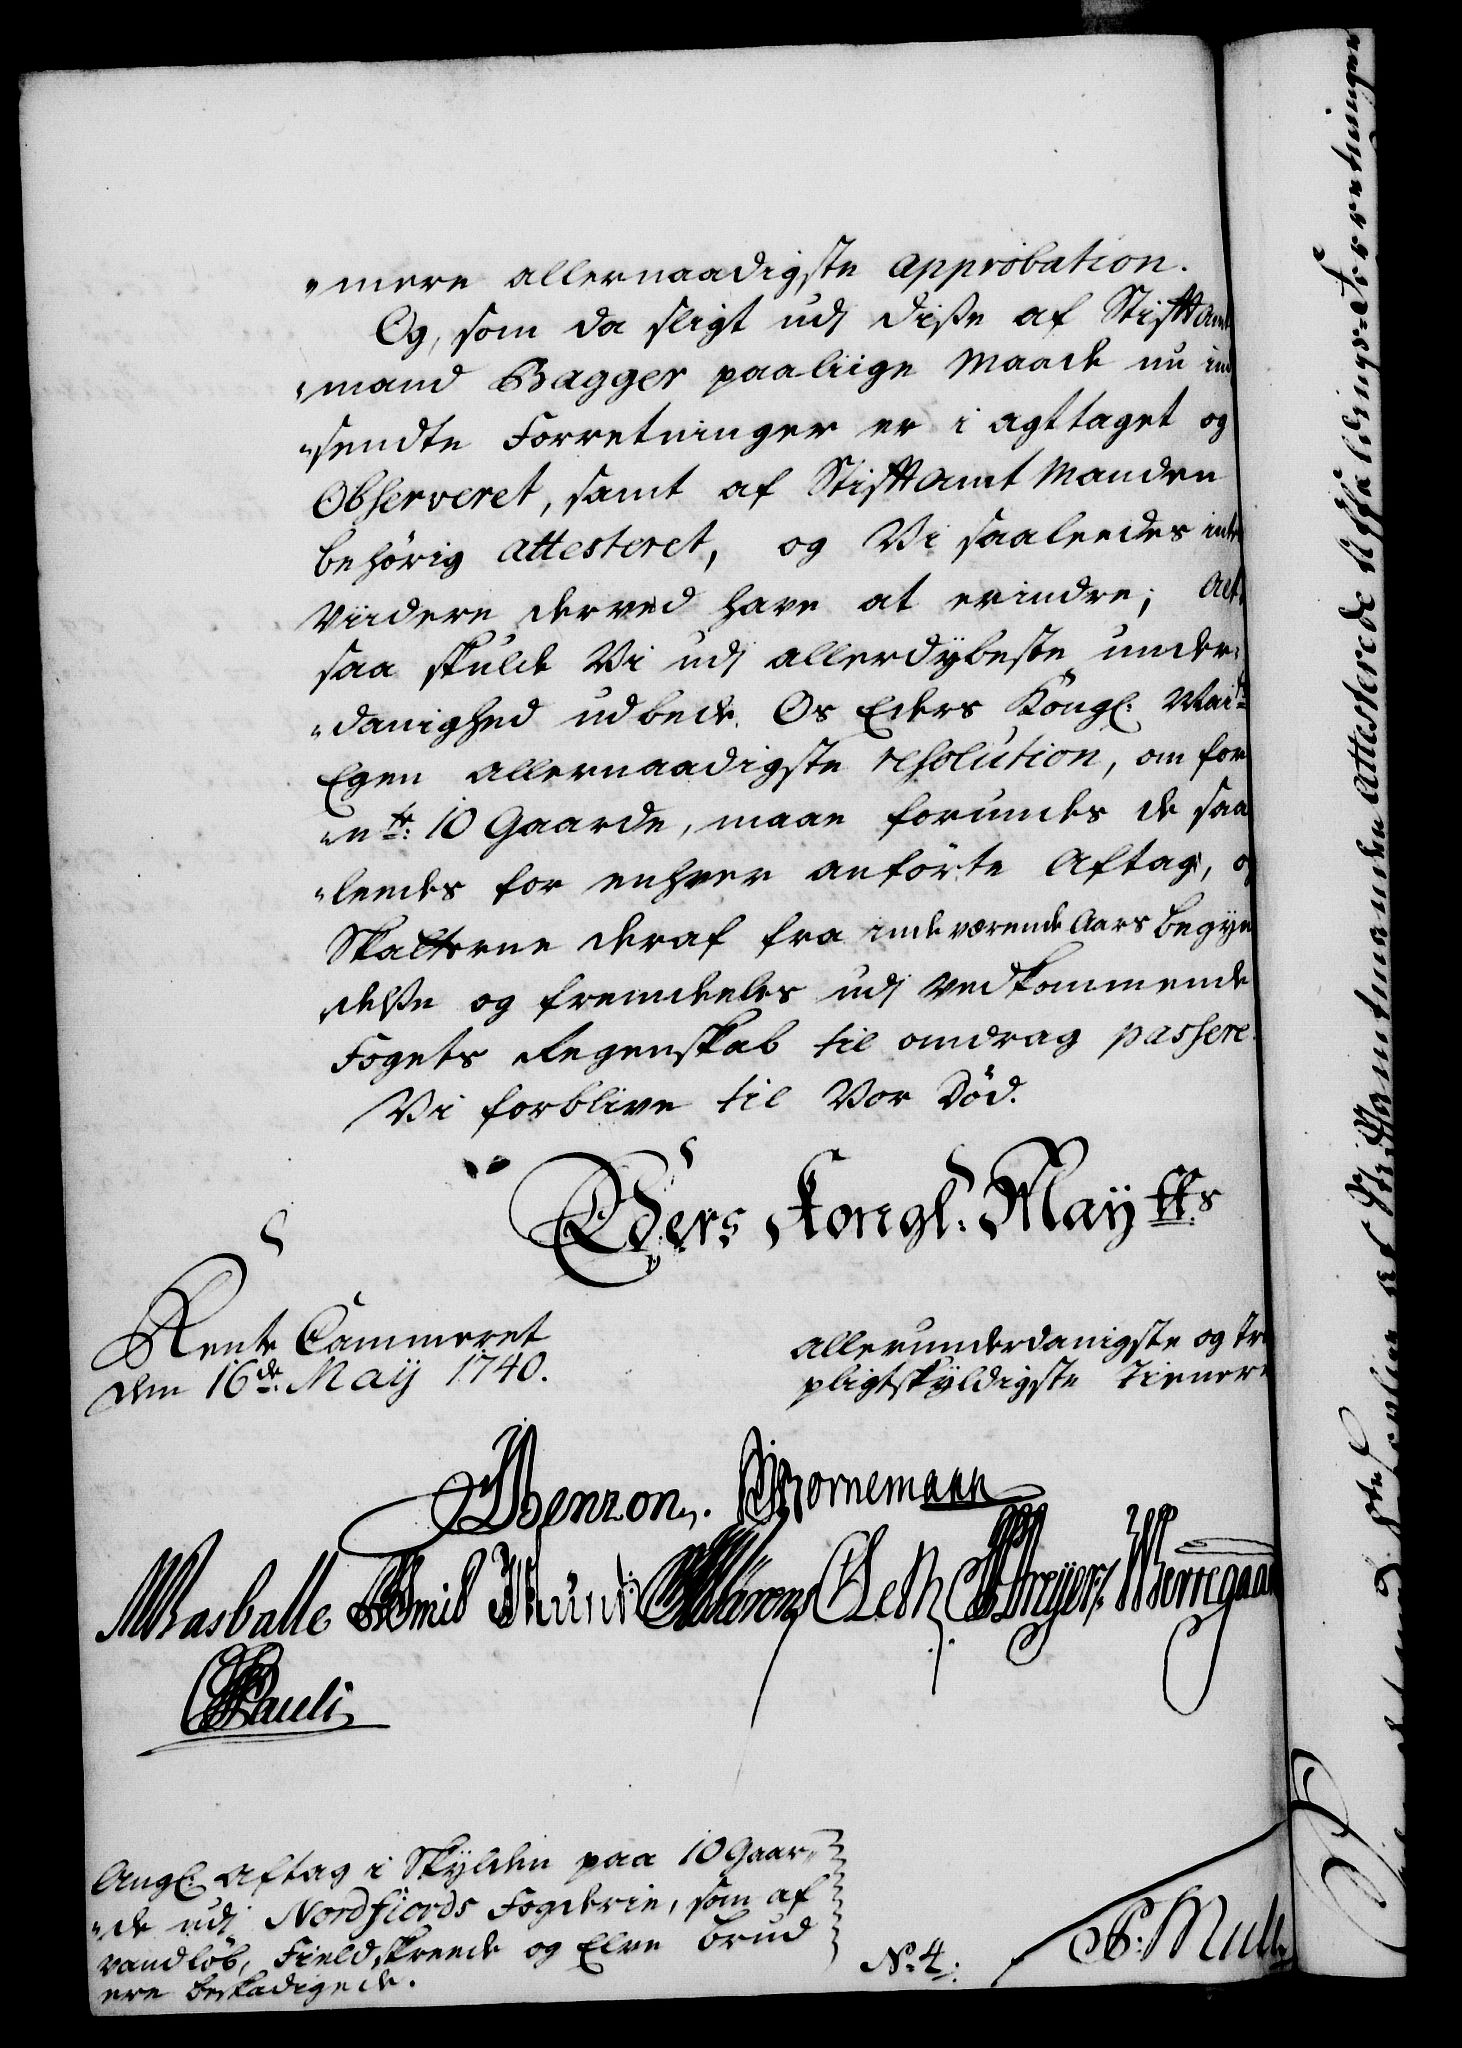 "mere allernaadigste approbation.
Og, som da sligt udj diße af Stifft Amt
"mand Bagger paaliige Maade nu ind
"sendte Forretninger er i agttaget og
Observeret, samt af StifftamtManden
behörig attesteret, og Vi saaleedes intet
Viidere derved have at erindre; Alt
saa skulde Vi udj allerdÿbeste under,
"danighed udbede Os Eders Kongl: Mai:ts
Egen allernaadigste resolution, om for
"n:te 10 Gaarde, maae forundes de saa
"leedes for enhver anförte Aftag, og
Skatterne deraf fra indeværende Aars begyn
delße og fremdeeles udj vedkommende
Fogets Regenskab til omdrag passere.
Vi forblive til Vor Död.
Eders Kongl: Maÿtts
Rente Cammeret
den 16de: Maÿ 1740.
allerunderdanigste og Tro
pligtskÿldigste Tienere
Benzon. Bornemann
Basballe Smid Munch Leth Dreÿer
Pauli
Angl: Aftag i Skÿlden paa 10 Gaar,,
"de udj Nordfiords Fogderie, som af
vandløb, Field,skreede og Elve brud
ere beskadigede.
No: 4:
Mull
attesterede Affældings-Forretninger